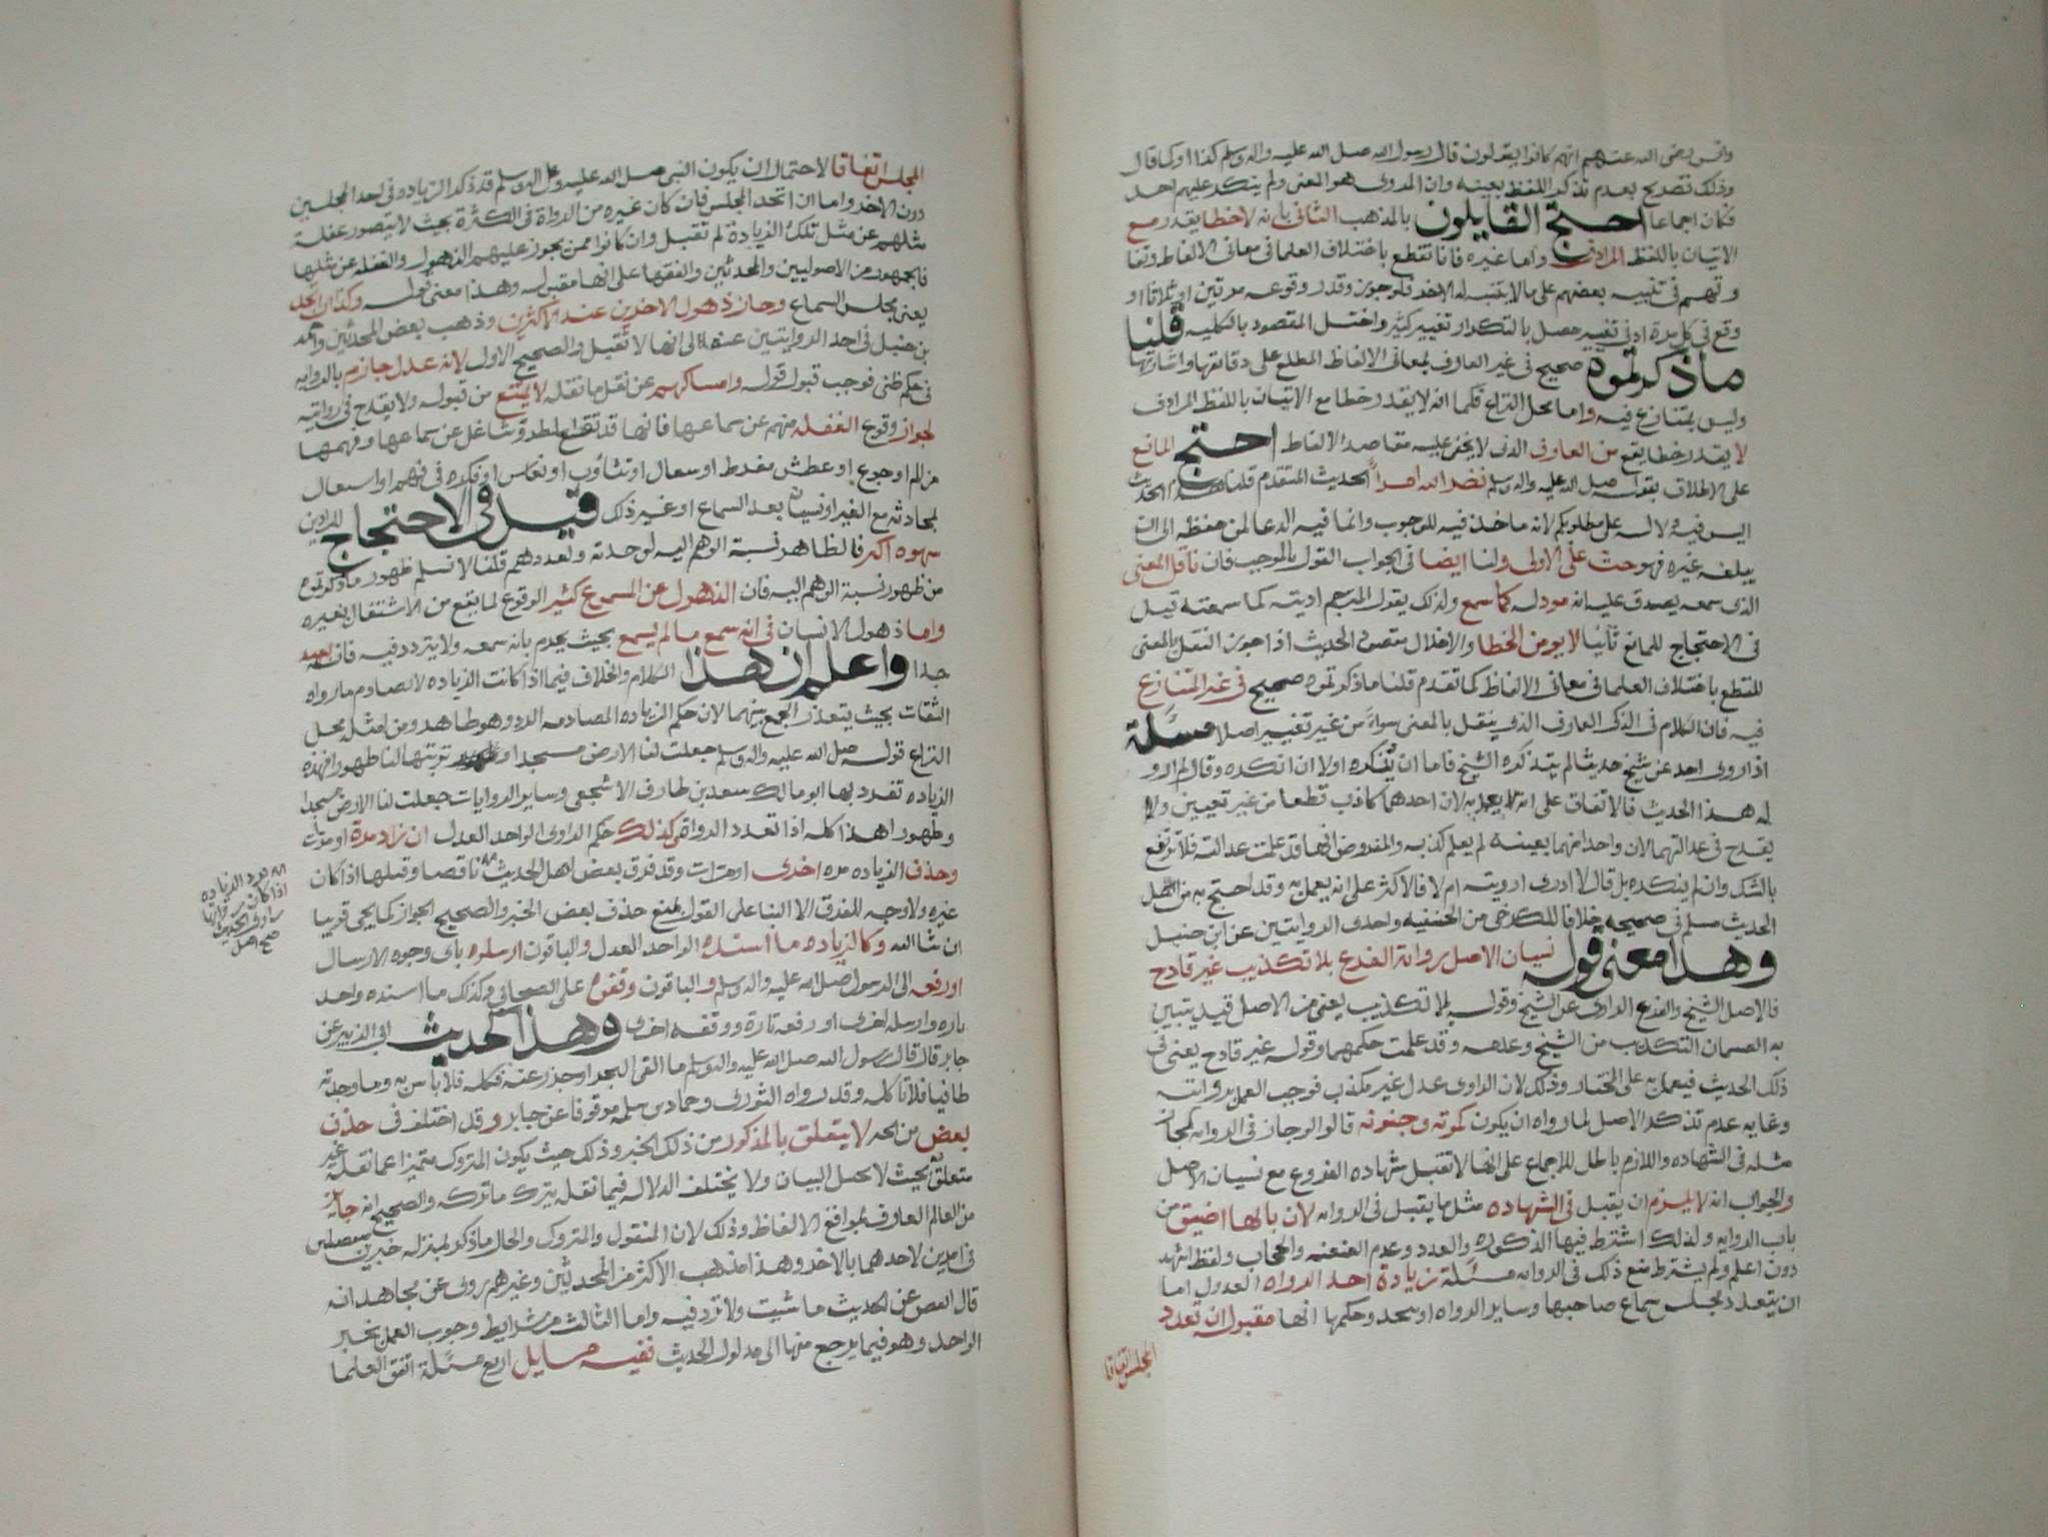 وانس رضى الله عنهم انهم كانوا يقولون قال رسول الله صلى الله عليه واله وسلم كذا او كما قال
وذلك تصريح بعدم تذكر اللفظ بعينه وان المروى هو المعنى ولم ينكر عليهم احد
فكان اجماعا احتج القايلون بالمذهب الثانى بانه لا خطا يقدر مع
الاتيان باللفظ المرادف واما غيره فانا نقطع باختلاف العلما فى معانى الالفاظ وتفا
وتهم فى تنبيه بعضهم على ما لا يتنبه له الاخر فلو جوز وقدر وقوعه مرتين او ثلاثا او
وقع فى كل مرة ادنى تغيير حصل بالتكرار تغيير كثير واختل المقصود بالكليه قلنا
ما ذكرتموه صحيح فى غير العارف بمعانى الالفاظ المطلع على دقائقها واشاراتها
وليس بمتنازع فيه واما محل النزاع فكما انه لا يقدر خطا مع الاتيان باللفظ المرادف
لا يقدر خطا يقع من العارف الذى لا يخفى عليه مقاصد الالفاظ احتج المانع
على الاطلاق بقوله صلى الله عليه واله وسلم نضر الله امرأ الحديث المتقدم قلنا هذا الحديث
ليس فيه دلاله على مطلوبكم لانه ماخذ فيه للوجوب وانما فيه الدعا لمن حفظه الى ان
يبلغه غيره فهو حث على الاولى ولنا ايضا فى الجواب القول بالموجب فان ناقل المعنى
الذى سمعه يصدق عليه انه مود له كما سمع ولذلك يقول المترجم اديته كما سمعته قيل
فى الاحتجاج للمانع ثانيا لا يومن الخطا والاخلال بمقصود الحديث اذا جوز النقل بالمعنى
للقطع باختلاف العلما فى معانى الالفاظ كما تقدم قلنا ما ذكرتموه صحيح فى غير المتنازع
فيه فان الكلام فى الذكى العارف الذى ينقل بالمعنى سواء من غير تغيير اصلا مسئلة
اذا روى احد عن شيخ حديثا لم يتذكره الشيخ فاما ان ينكره اولا ان انكره وقال لم ارو
له هذا الحديث فالاتفاق على انه لا يعمل به لان احدهما كاذب قطعا من غير تعيين ولا
يقدح فى عدالتهما لان واحدا منهما بعينه لم يعلم كذبه والمفروض انهما قد علمت عدالته فلا ترتفع
بالشك وان لم ينكره بل قال لا ادرى ارويته ام لا فالاكثر على انه يعمل به وقد احتج به من اهل
الحديث مسلم فى صحيحه خلافا للكرخى من الحنفيه واحدى الروايتين عن ابن حنبل
وهذا معنى قوله نسيان الاصل رواية الفرع بلا تكذيب غير قادح
فالاصل الشيخ والفرع الراوى عن الشيخ وقوله بلا تكذيب يعنى من الاصل قيد يتبين
به القسمان التكذيب من الشيخ وعدمه وقد علمت حكمهما وقوله غير قادح يعنى فى
ذلك الحديث فيعمل به على المختار وذلك لان الراوى عدل غير مكذب فوجب العمل بروايته
وغايه عدم تذكر الاصل لما رواه ان يكون كموته وجنونه قالوا لو جاز فى الروايه لجاز
مثله فى الشهاده واللازم باطل للاجماع على انها لا تقبل شهاده الفروع مع نسيان الاصل
والجواب انه لا يلزم ان يقبل فى الشهاده مثل ما يقبل فى الروايه لان بابها اضيق من
باب الروايه ولذلك اشترط فيها الذكوره والعدد وعدم العنعنه والحجاب ولفظ اشهد
دون اعلم ولم يشترط شى ذلك فى الروايه مسئلة زيادة احد الرواه العدول اما
ان يتعدد مجلس سماع صاحبها وساير الرواه او يتحد وحكمها انها مقبوله ان تعدد
المجلس اتفاقا
المجلس اتفاقا لاحتمال ان يكون النبى صلى الله عليه وعلى اله وسلم قد ذكر الزياده فى احد المجلسين
دون الاخر واما ان اتحد المجلس فان كان غيره من الرواة فى الكثرة بحيث لا يتصور غفلة
مثلهم عن مثل تلك الزيادة لم تقبل وان كانوا ممن يجوز عليهم الذهول والغفله عن مثلها
فالجمهور من الاصوليين والمحدثين والفقها على انها مقبوله وهذا معنى قوله وكذا ان اتحد
يعنى مجلس السماع وجاز ذهول الاخرين عند الاكثرين وذهب بعض المحدثين واحمد
بن حنبل فى احد الروايتين عنه الى انها لا تقبل والصحيح الاول لانه عدل جازم بالروايه
فى حكم ظنى فوجب قبول قوله وامساكهم عن نقل ما نقله لا يمنع من قبوله ولا يقدح فى روايته
لجواز وقوع الغفله منهم عن سماعها فانها قد تقع لطرو شاغل عن سماعها وفهمها
من الم او جوع او عطش مفرط او سعال او تثاوب او نعاس او فكره فى فهم او اسعال
لمحادثه مع الغير او نسيان بعد السماع او غير ذلك قيل فى الاحتجاج للرادين
سهوه اكثر فالظاهر نسبة الوهم اليه لوحدته وتعددهم قلنا لا نسلم ظهور ما ذكرتموه
من ظهور نسبة الوهم اليه فان الذهول عن المسموع كثير الوقوع لما يقع من الاشتغال بغيره
واما ذهول الانسان فى انه سمع ما لم يسمع بحيث يجزم بانه سمعه ولا يتردد فيه فانه بعيد
جدا واعلم ان هذا الكلام والخلاف فيما اذا كانت الزياده لا تصادم ما رواه
الثقات بحيث يتعذر الجمع بينهما لان حكم الزياده المصادمه الرد وهو ظاهر ومن امثله محل
النزاع قوله صلى الله عليه واله وسلم جعلت لنا الارض مسجدا و تربتها لنا طهورا فهذه
الزياده تفرد بها ابو مالك سعد بن طارق الاشجعى وساير الروايات جعلت لنا الارض مسجدا
وطهورا هذا كله اذا تعدد الرواة وكذلك حكم الراوى الواحد العدل ان زاد مرة او مرات
وحذف الزياده مره اخرى او مرات وقد فرق بعض اهل الحديث ناقصا وقبلها اذا كان
من رد الزياده
اذا كان
راوى الحديث
صح اصل
غيره ولا وجه للفرق الا البنا على القول بمنع حذف بعض الخبر والصحيح الجواز كما يجى قريبا
ان شا الله وكالزياده ما اسنده الواحد العدل والباقون ارسلوه باى وجوه الارسال
او رفعه الى الرسول صلى الله عليه واله وسلم والباقون وقفوه على الصحابى وكذلك ما اسنده واحد
تاره وارسله اخرى او رفعه تارة ووقفه اخرى وهذا الحديث ابى الزبير عن
جابر قال قال رسول الله صلى الله عليه واله وسلم ما القى البحر او جزر عنه فكله فلا باس به وما وجدته
طافيا فلا تاكله وقد رواه الثورى وحماد بن سلمه موقوفا عن جابر وقد اختلف فى حذف
بعض من الخبر لا يتعلق بالمذكور من ذلك الخبر وذلك حيث يكون المتروك متميزا عما نقله غير
متعلق به بحيث لا يختل البيان ولا يختلف الدلاله فيما نقله بترك ما تركه والصحيح انه جائز
من العالم العارف بمواقع الالفاظ وذلك لان المنقول والمتروك والحال ما ذكر بمنزله خبرين منفصلين
فى امرين لاحدهما بالاخر وهذا مذهب الاكثر من المحدثين وغيرهم روى عن مجاهد انه
قال انقص عن الحديث ما شيت ولا تزد فيه واما الثالث من شرايط وجوب العمل بخبر
الواحد وهو فيما يرجع منها الى مدلول الحديث ففيه مسايل اربع مسئلة اتفق العلما